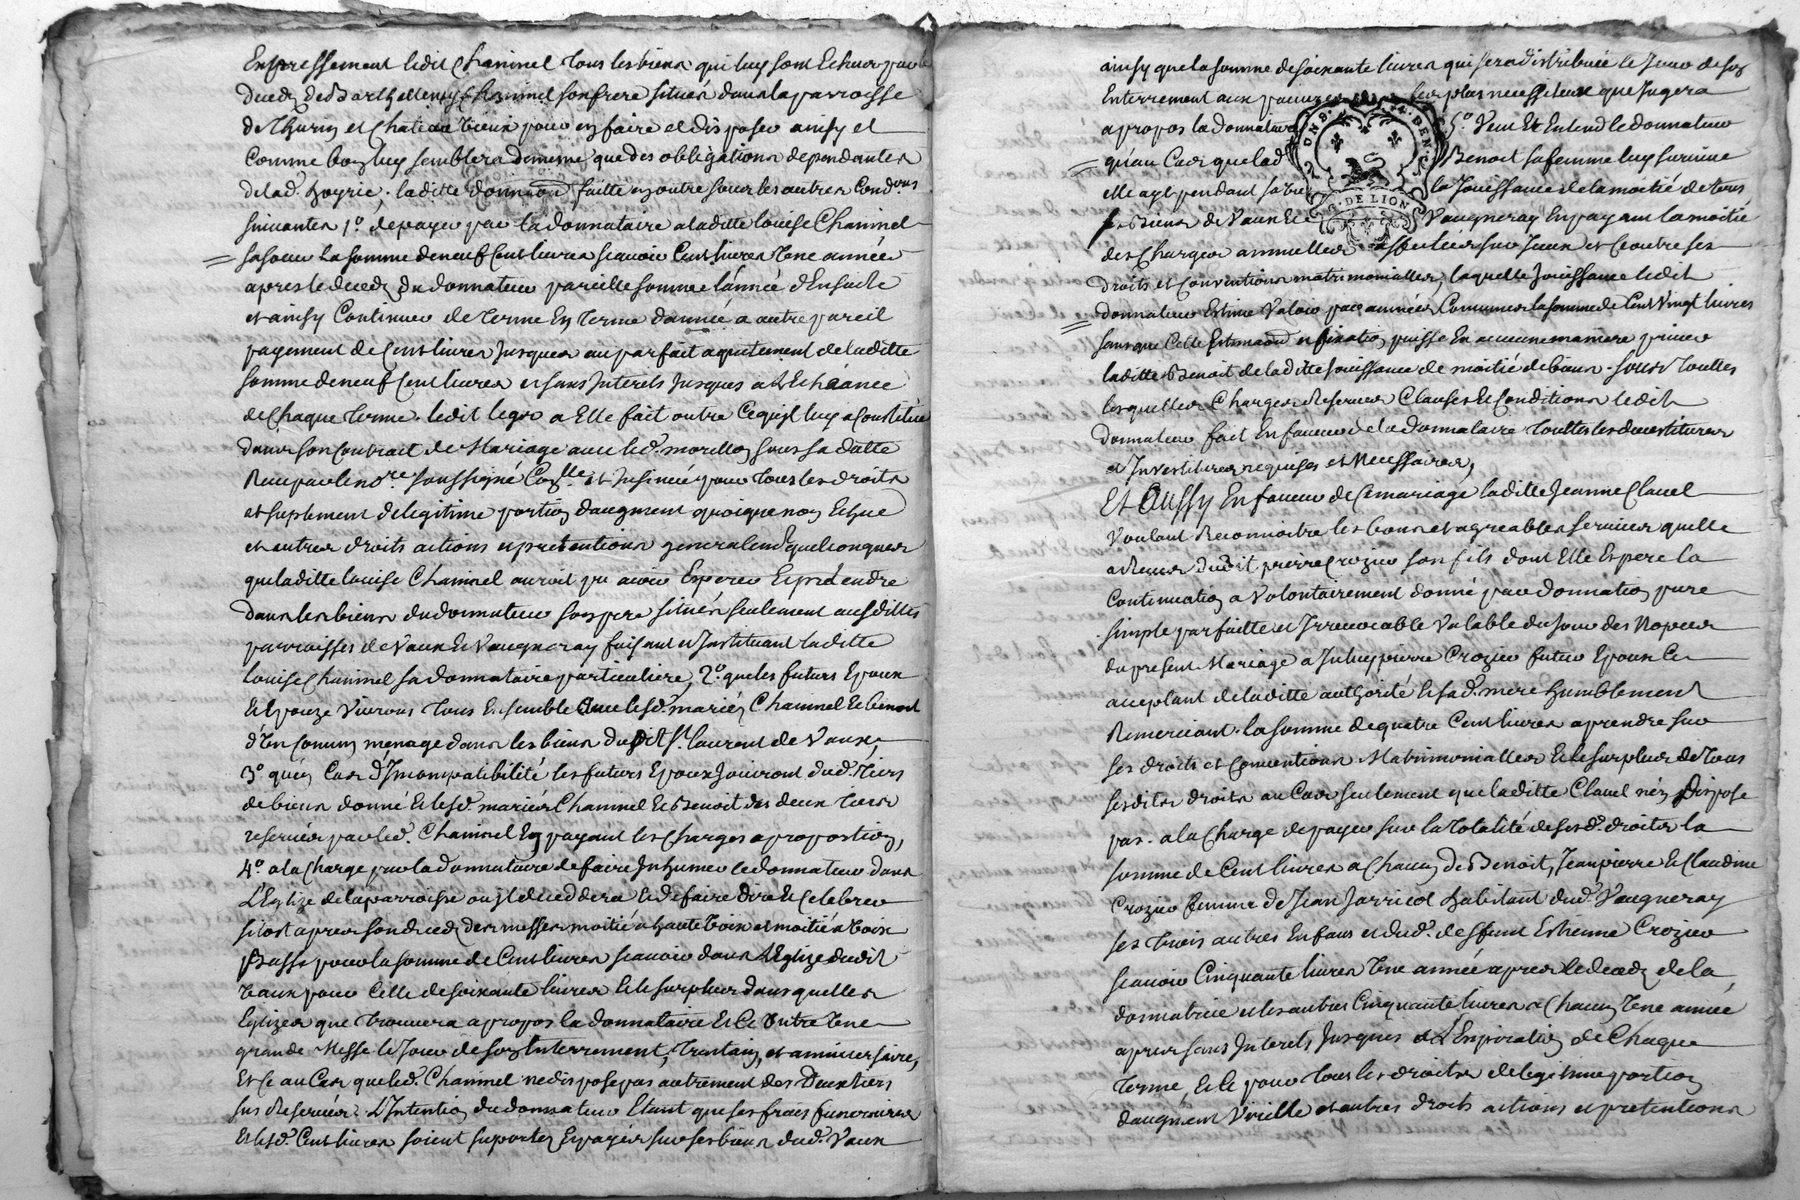 Expressement ledit Chaninel tous les biens qui luy sont Echus par le
deced de Barthellemy Chaninel son frere situés dans la parroisse
de Thurin et Chateau Vieux pour en faire et disposer ainsy et
comme bon luy semblera de meme que des obligations dependantes
de lad. hoyrie; laditte donnaon faitte en outre sous les autres Condons
suivantes 1º. de payer par la donnataire a laditte Louise Chaninel
sa soeur la somme de neuf Cent livres scavoir Cent livres Une année
apres le deced du donnateur pareille somme l'année d'Ensuite
et ainsy Continuer de terme En terme d'année a autre pareil
payement de Cent livres Jusques au parfait aquitement de laditte
somme de neuf Cent livres et sans Interets Jusques a L'Echéance
de Chaque terme. ledit legs a Elle fait outre Ce qu'il luy a Constitué
dans son Contrait de Mariage avec led. morillon sous sa datte
Receu par le nore. soussigné Conllé et Insinué pour tous les droits
et suplement de legitime portion d'augment quoique non Echue
et autres droits actions et pretentions generalemt quelconques
que laditte Louise Chaninel auroit pu avoir Esperer Et pretendre
dans les biens du donnateur son pere situés seulement ausdittes
parroisses de Vaux Et Vaugneray faisant et Instituant laditte
Louise Chaninel sa donnataire particuliere, 2º. que les futurs Epoux
Et Epouze Vivront tous Ensemble avec lesd. mariés Chaninel Et benoit
d'Un Comun menage dans les biens dudit St. laurent de Vaux,
3º qu'en Cas d'Incompatibilité les futurs Epoux Jouiront dud. tiers
de biens donné Et lesd. mariés Chaninel Et Benoit des deux tiers
reservés par led. Chaninel En payant les Charges a proportion,
4º. a la Charge par la donnataire de faire Inhumer le donnateur dans
L'Eglize de la parroisse ou il decedera Et de faire dire Et Celebrer
sitost apres son deced des messes moitié a haute Voix et moitié a Voix
Basse pour la somme de Cent livres scavoir dans L'Eglize dudit
Vaux pour Celle de soixante livres Et le surplus dans quelles
Eglizes que trouvera a propos la donnataire Et Ce outre Une
grande Messe le Jour de son Enterrement, Trentain, et anniversaire,
Et Ce au Cas que led. Chaninel ne dispose pas autrement des Deux tiers
sus Reservés. L'Intention du donnateur Etant que ses frais funeraires
Et lesd. Cent livres soient suportés Et payés sur ses biens dud. Vaux
ainsy que la somme de soixante livres qui sera distribuée le Jour de son
Enterrement aux pauvres les plus necessiteux que Jugera
a propos la donnataire 5º. Veut Et Entend le donnateur
qu'au Cas que lad Benoit sa femme luy survive
elle aye pendant sa vie la Jouissance de la moitié de tous
ses Biens de Vaux Et Vaugneray En payant la moitié
des Charges annuelles affectées sur Iceux et Ce outre ses
droits et Conventions matrimonialles, laquelle Jouissance ledit
donnateur Estime Valoir par années Communes la somme de Cent Vingt livres
sans que Cette Estimaon et fixation puisse En aucune maniere priver
laditte Benoit de laditte Jouissance de moitié de biens. sous touttes
lesquelles Charges Reserves Clauses Et Conditions ledit
donnateur fait En faveur de la donnataire touttes les devestitures
et Investitures requises et Necessaires,
Et Aussy En faveur de Ce mariage laditte Jeanne Clavel
Voulant Reconnoitre les bons et agreables services quelle
a Receus dudit pierre Crozier son fils dont Elle Espere la
Continuation a Volontairement donné par donnation pure
simple parfaitte et Irrevocable Valable du jour des Nopces
du present Mariage a Iceluy pierre Crozier futur Epoux Ce
acceptant de laditte authorité lesad. mere humblement
Remerciant. la somme de quatre Cent livres a prendre sur
ses droits et Conventions Matrimonialles Et le surplus de tous
sesdits droits au Cas seulement que laditte Clavel n'en Dispose
pas. a la Charge de payer sur la totalité de sesd. droits la
somme de Cent livres a Chacun de Benoit, Jean pierre Et Claudine
Crozier femme de Jean Jarricot habitant dud. Vaugneray
ses trois autres Enfans et dud. deffunt Estienne Crozier
scavoir Cinquante livres Une année apres le deced de la
donnatrice et les autres Cinquante livres a Chacun Une année
apres sans Interets Jusques a L'Expiration de Chaque
terme, Et Ce pour tous les droits de legitime portion
d'augment Virille et autres droits actions et pretentions
DNS. GEN.
G. DE LION